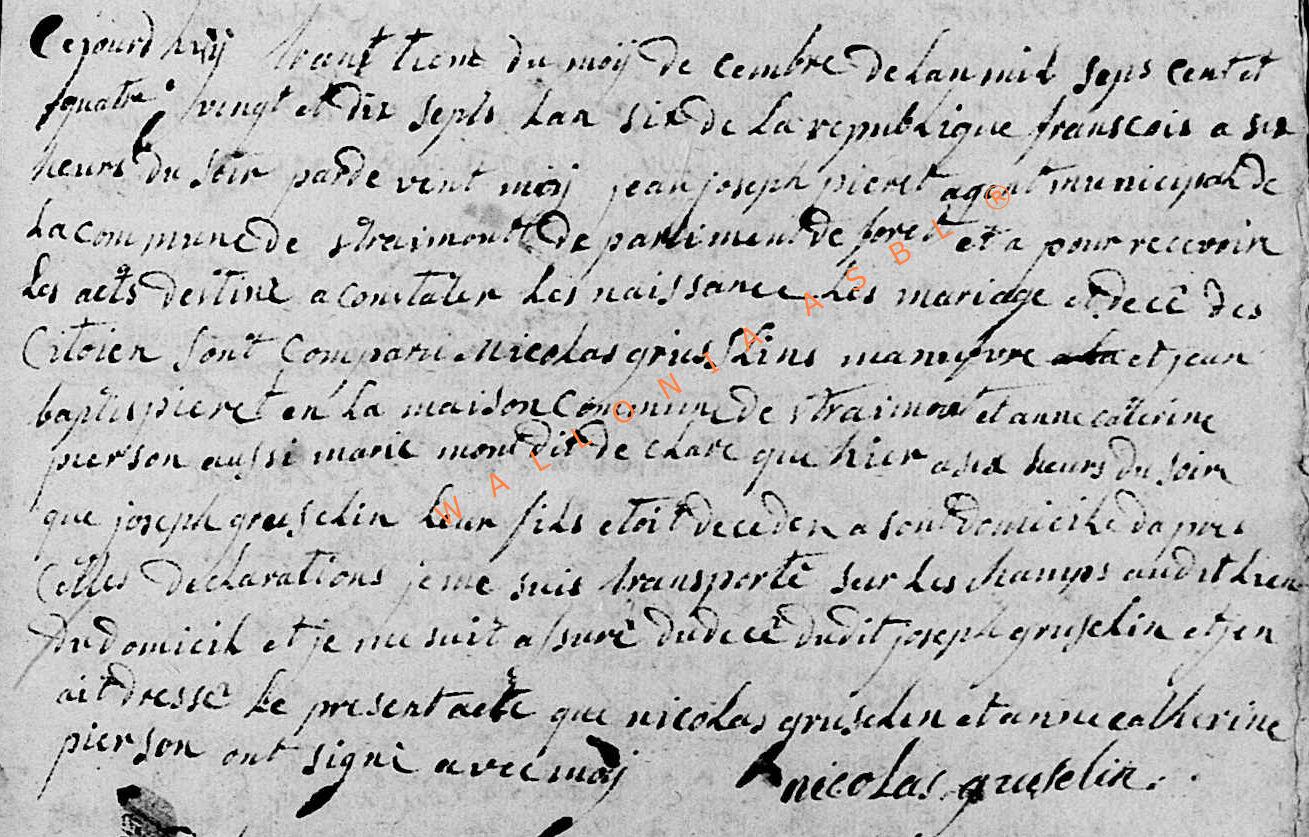 Cejourd huij trent tieme du moij de cembre de Lan mil seps cent et
quatre vingt et dix septs Lan six de La republique franscois a six
heurs du soir par de vent moij jean joseph pieret agent municipal de
La commune de straimont de partiment de foret et a pour recevoir
Les acts destiné a constater Les naissance Les mariage et decê des
Citoien sont comparu Nicolas gruslins manuvre et jean
baptis pieret en La maison commune de straimont et anne catterine
pierson aussi marie mont dit de clare que hier a six heurs du soir
que joseph gruselin Leur fils etoit deceder a sont domicile dapres
Cettes declarations je me suis transporté sur Les champs audit Lieu
du domicil et je me suit assuré du decê dudit joseph gruselin et jen
ait dressé Le present acte que nicolas gruselin et anne catherine
pierson ont signé avec moij nicolas gruselin.
WALLONIA ASBL ®